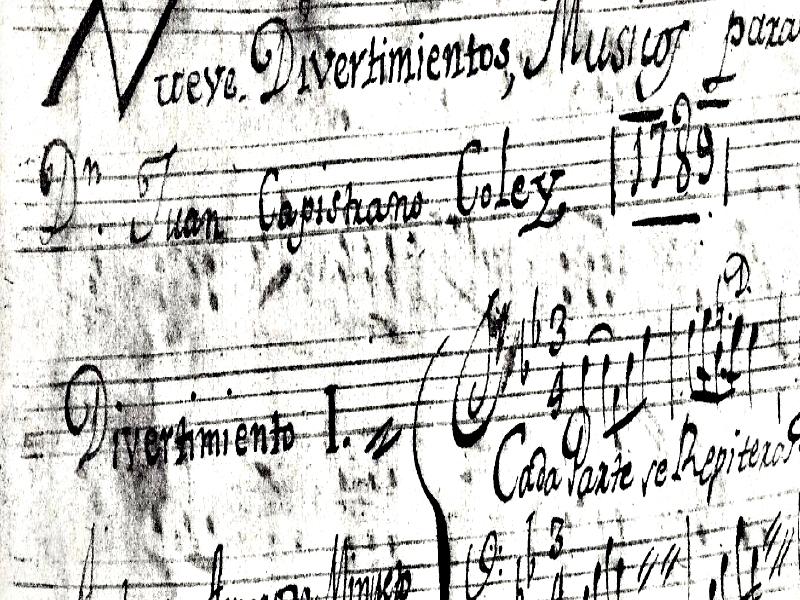 Nueve. Divertimientos, Musicos para
Dn. Juan Capistrano Coley |1789|
Divertimiento I.
3
4
Cada Parte se Repiterá
Minueto
3
4